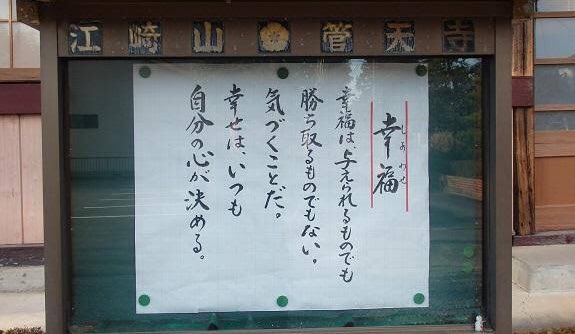 江崎山 管天寺
幸福
しあわせ
幸福は、与えられるものでも
勝ち取るものでもない。
気づくことだ。
幸せは、いつも
自分の心が決める。